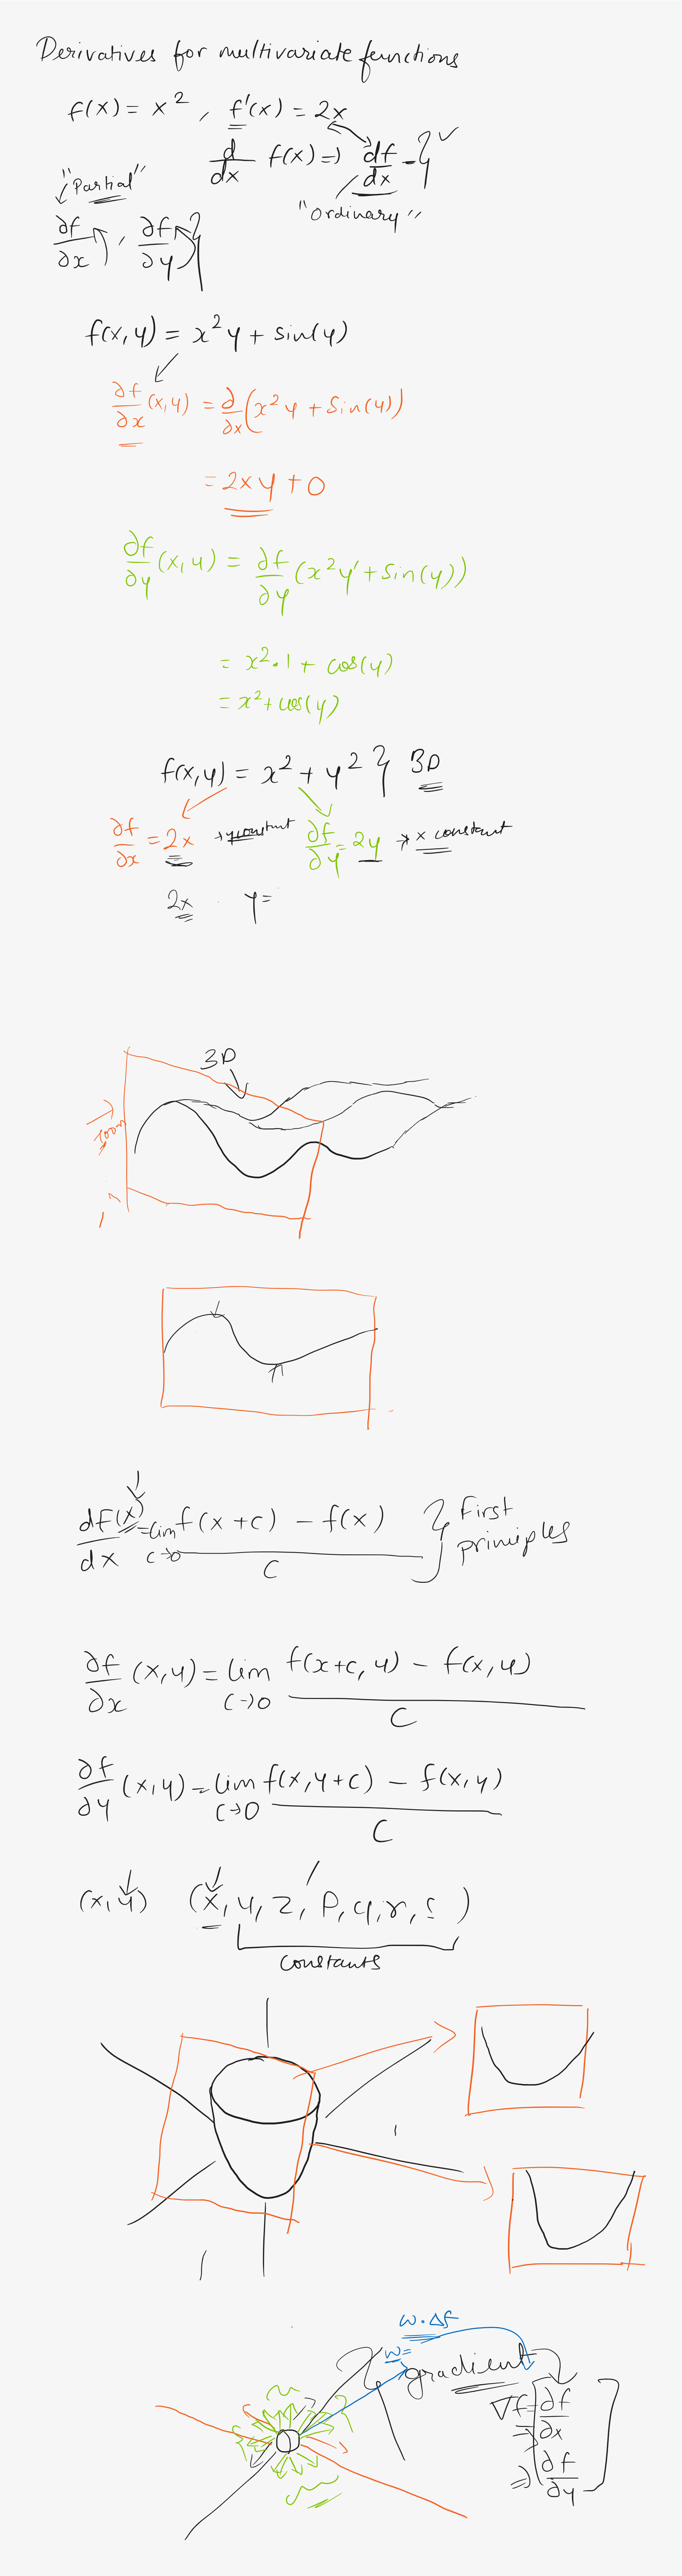 Derivatives for multivariate functions
f(x) = x², f'(x) = 2x
d/dx f(x) => df/dx - }
"Partial"
"ordinary"
∂f/∂x , ∂f/∂y }
f(x,y) = x²y + sin(y)
∂f/∂x (x,y) = ∂/∂x (x²y + sin(y))
= 2xy + 0
∂f/∂y (x,y) = ∂f/∂y (x²y + sin(y))
= x²·1 + cos(y)
= x² + cos(y)
f(x,y) = x² + y² } 3D
∂f/∂x = 2x → y constant ∂f/∂y = 2y → x constant
2x y =
3D
zoom
df(x)/dx = lim c→0 f(x+c) - f(x) / c } First principles
∂f/∂x (x,y) = lim c→0 f(x+c,y) - f(x,y) / c
∂f/∂y (x,y) = lim c→0 f(x,y+c) - f(x,y) / c
(x,y) (x,y,z,p,q,r,s)
constants
w·Δf
w=
gradient
∇f = [∂f/∂x
=> ∂f/∂y]